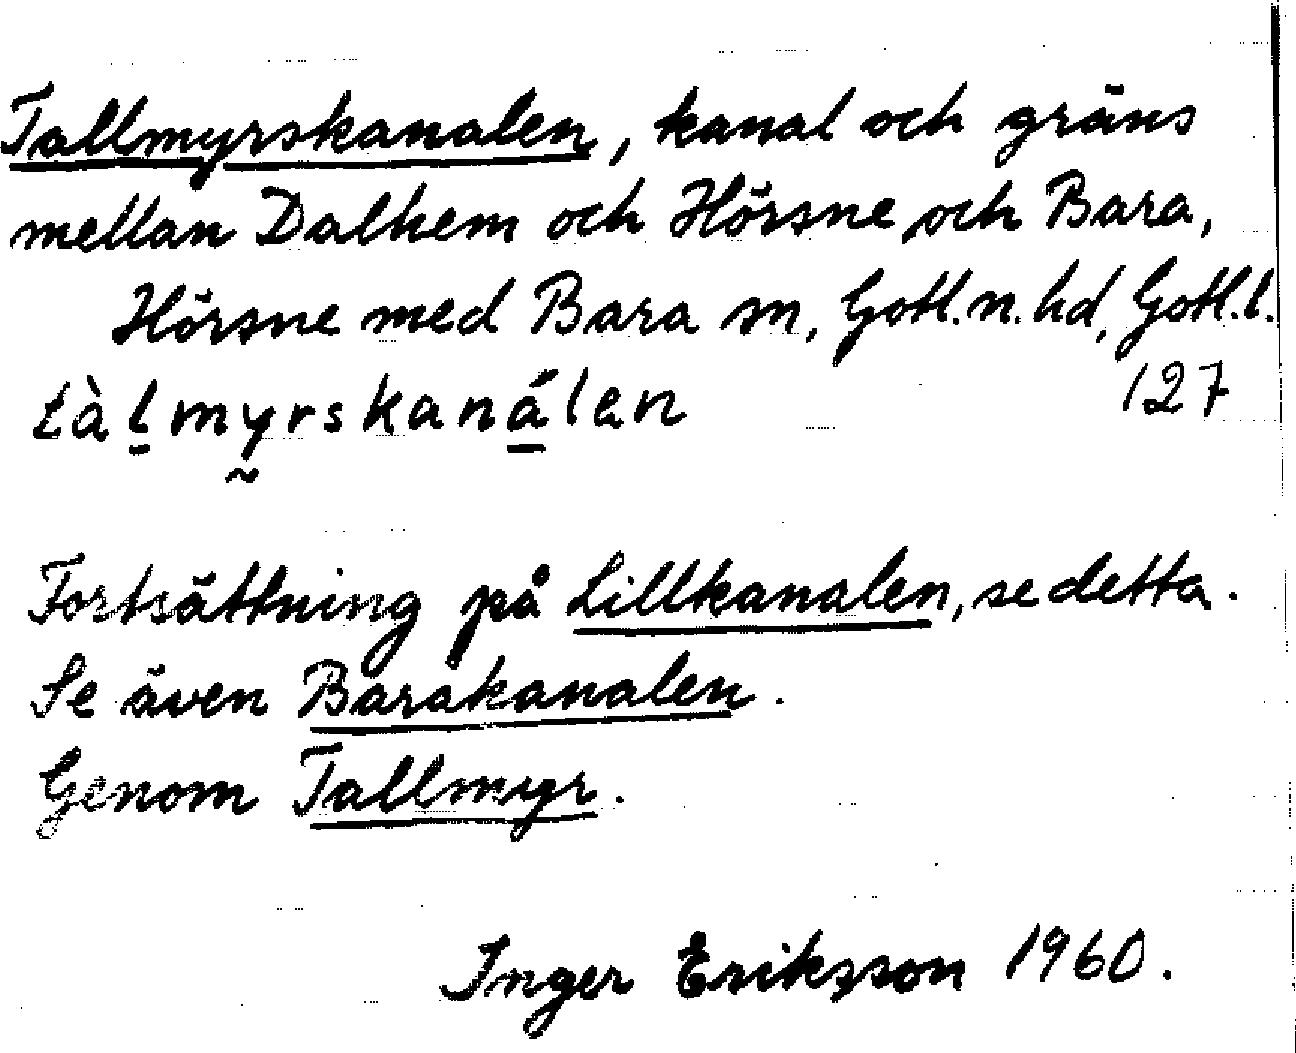 Tallmyrskanalen, kanal och gräns
mellan Dalhem och Hörsne och Bara,
Hörsne med Bara sn, Gotl. n. hd, Gotl. l.
tàl̠my̰rskaná̠len 127
Fortsättning på Lillkanalen, se detta.
Se även Barakanalen.
Genom Tallmyr.
Inger Eriksson 1960.